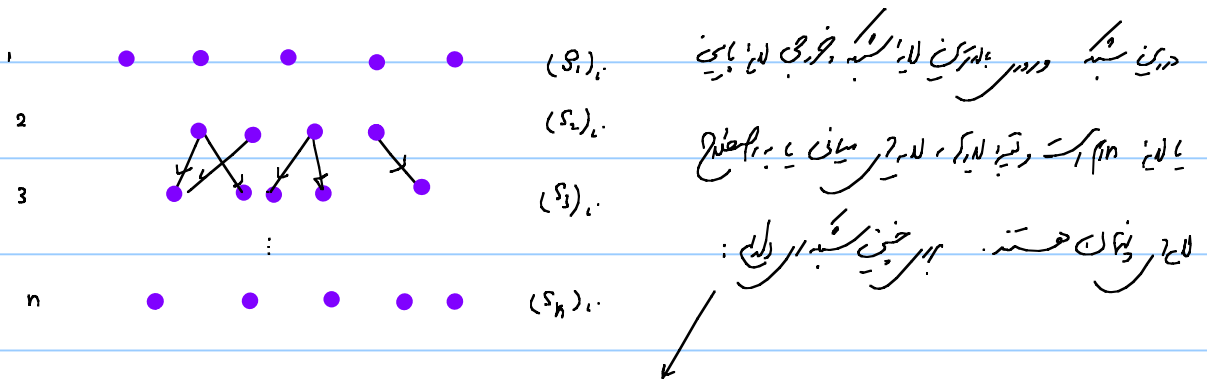 1 (S₁)ᵢ
2 (S₂)ᵢ
3 (S₃)ᵢ
⋮
n (Sₙ)ᵢ
درین شبکه ورودی بالاترین لایه شبکه و خروجی لایه پایین
یا لایه nام است و بقیه لایه‌ها، لایه‌های میانی یا به اصطلاح
لایه‌های پنهان هستند. برای چنین شبکه‌ای داریم: